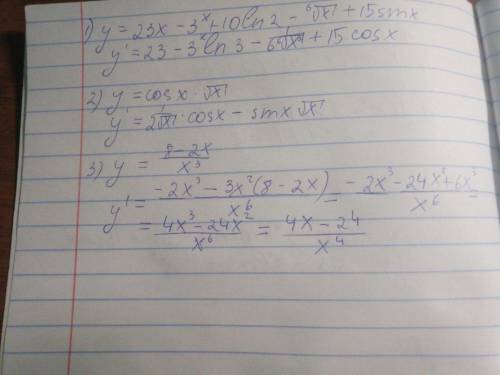 1) y = 23x - 3^x + 10 ln 2 - ⁶√x + 15 sin x
y' = 23 - 3^x ln 3 - 6√x + 15 cos x
2) y = cos x · √x
y' = 2√x · cos x - sin x √x
3) y = (8 - 2x)/x³
y' = (-2x³ - 3x²(8 - 2x))/x⁶ = (-2x³ - 24x² + 6x³)/x⁶ =
= (4x³ - 24x²)/x⁶ = (4x - 24)/x⁴